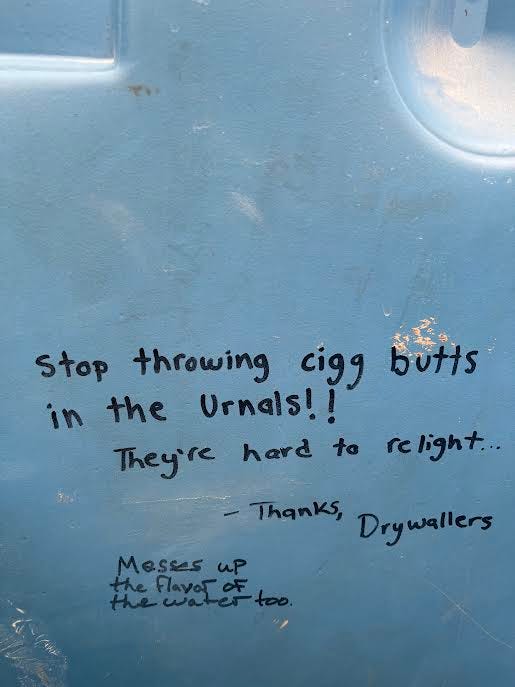 Stop throwing cigg butts
in the Urnals!!
They're hard to relight...
- Thanks, Drywallers
Messes up
the flavor of
the water too.